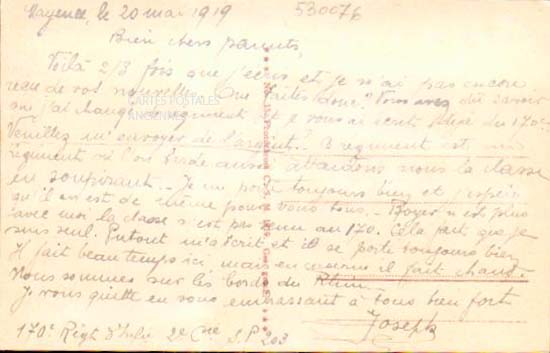 Mayence, le 20 mai 1919
530076
Bien chers parents,
Voilà 2/3 fois que j'écris et je n'ai pas encore
reçu de vos nouvelles. Que faites donc? Vous avez dû savoir
que j'ai changé régiment et je vous ai écrit du 170e
CARTES POSTALES
ANCIENNES
Veuillez m'envoyer de l'argent. régiment est un
régiment où l'on aussi attendons nous la classe
en soupirant. Je me porte toujours bien et j'espère
qu'il en est de même pour vous tous. - Royer n'est plus
avec moi la classe n'est pas venue au 170. Cela fait que je
suis seul. m'écrit et il se porte toujours bien
Il fait beau temps ici, mais en caserne il fait chaud.
Nous sommes sur les bords du Rhin.
Je vous quitte en vous embrassant à tous bien fort
Joseph
170e Régt d'Infie 2e Cie S.P 203